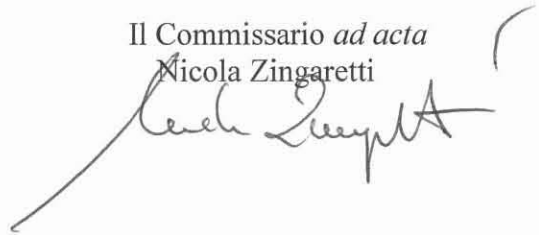 Il Commissario ad acta
Nicola Zingaretti